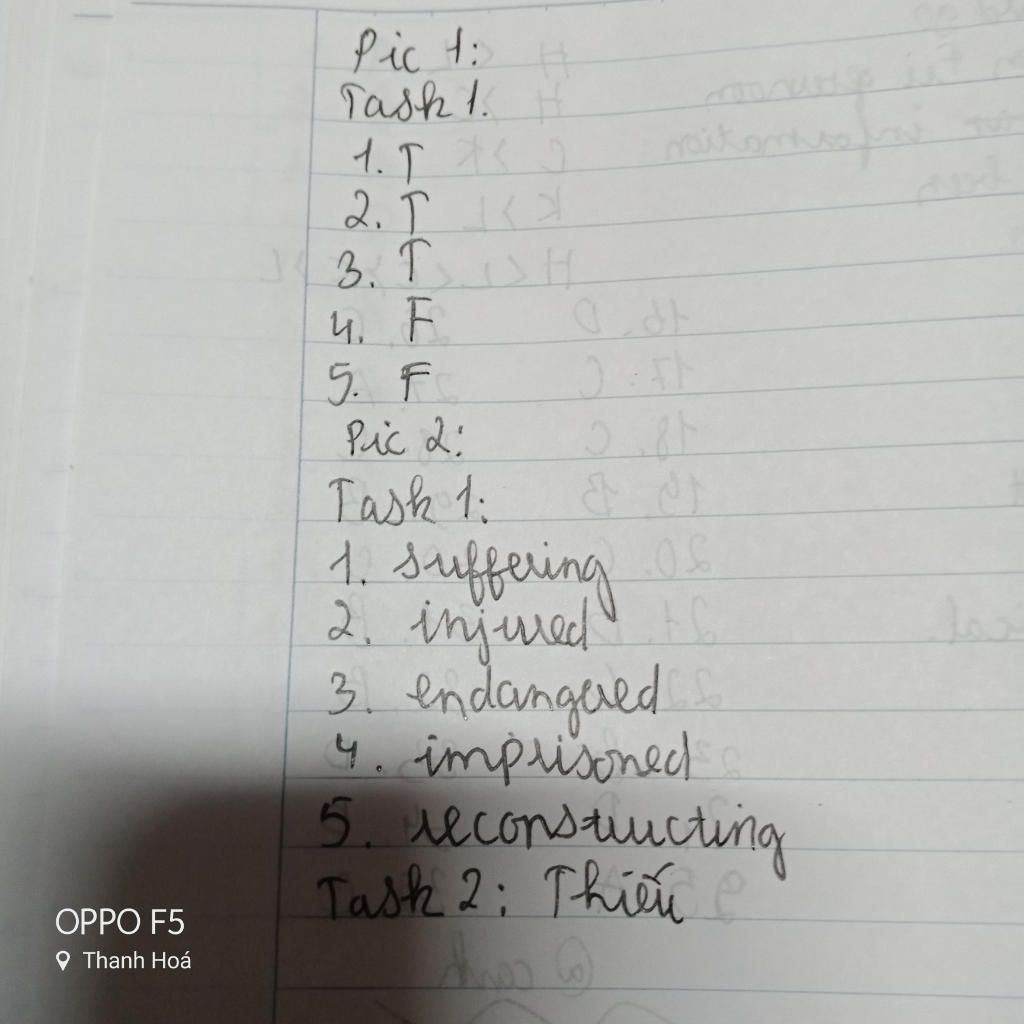 Pic 1:
Task 1.
1. T
2. T
3. T
4. F
5. F
Pic 2:
Task 1:
1. suffering
2. injured
3. endangered
4. imprisoned
5. reconstructing
Task 2: Thiếu
OPPO F5
Thanh Hoá